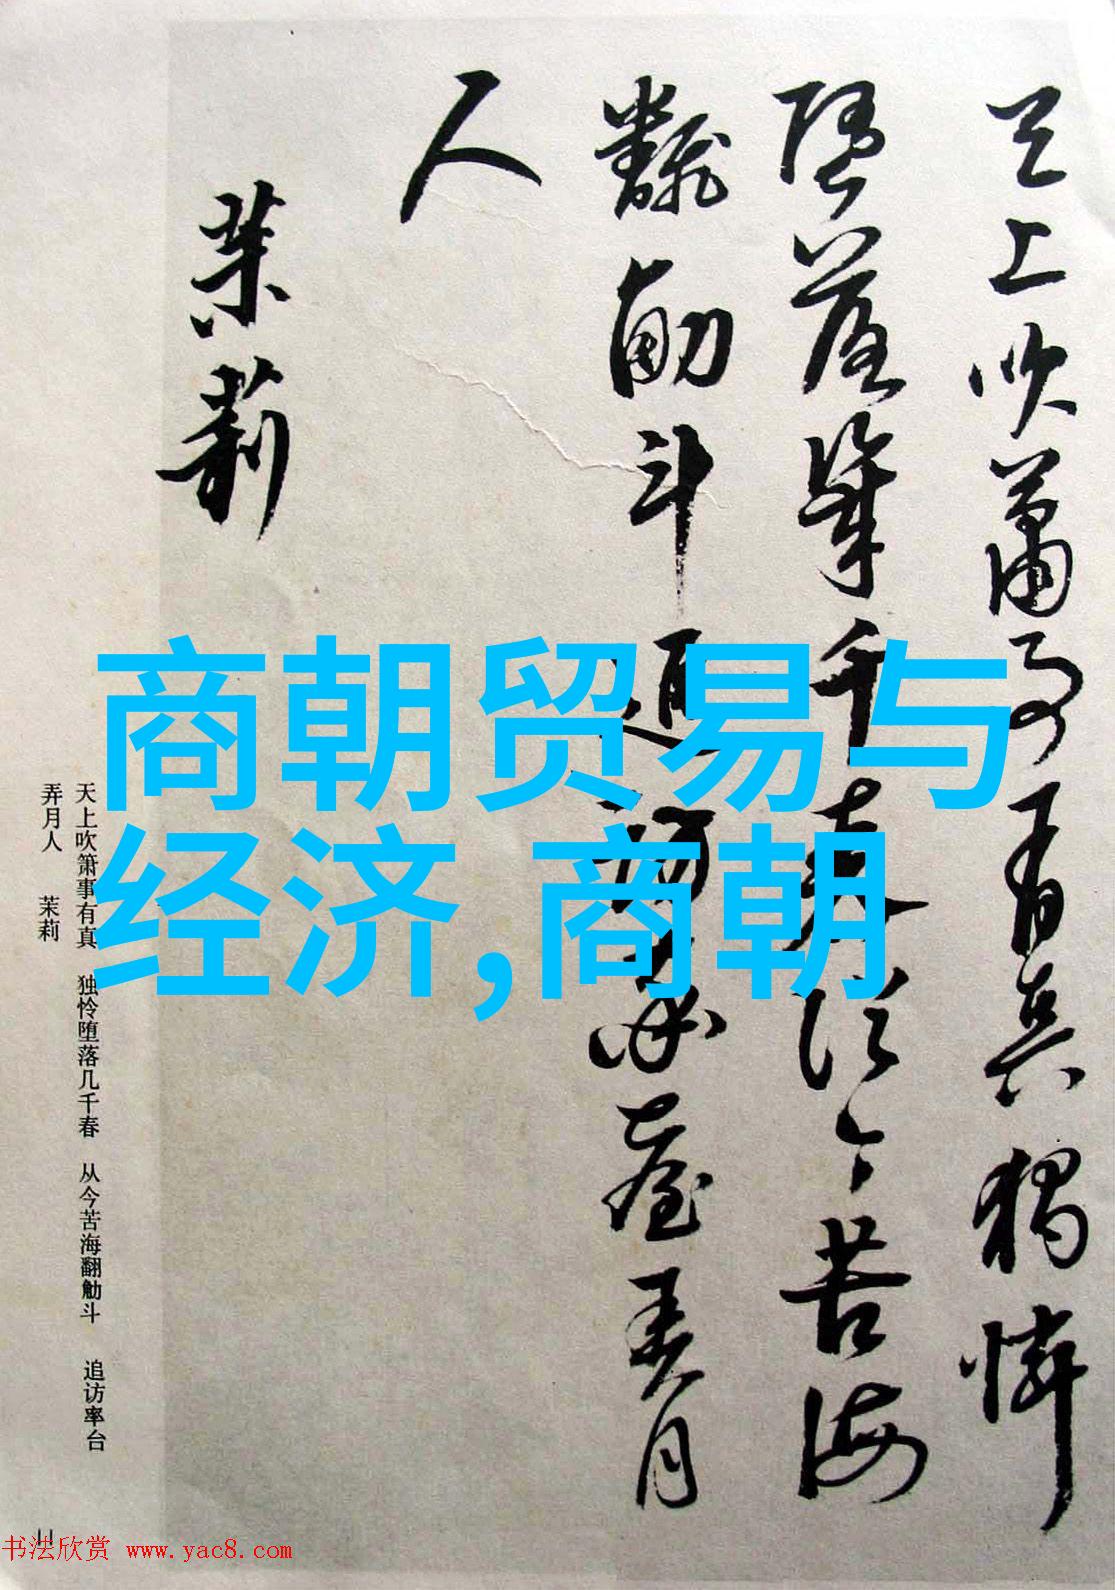 天上吹簫事有真獨憐
墮落幾千春從今苦海
翻觔斗追訪率臺弄月
人
茉莉
商朝贸易与
经济,商朝
天上吹箫事有真 独怜堕落几千春 从今苦海翻觔斗 追访率台
弄月人 茉莉
11
书法欣赏 www.yac8.com